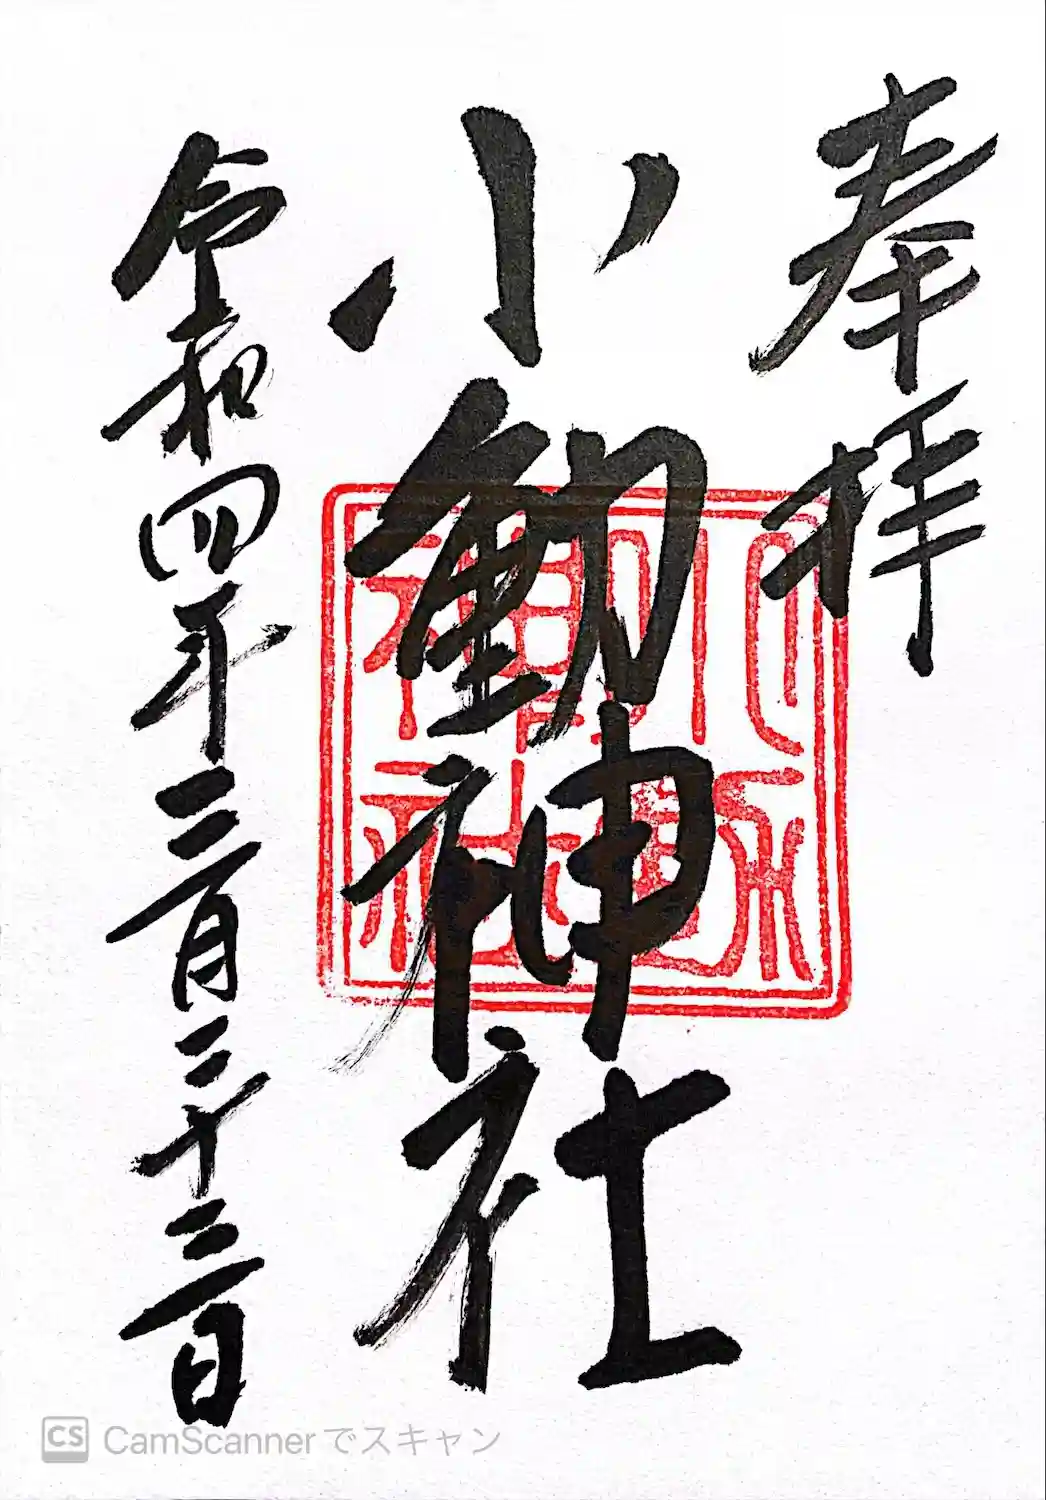 奉拝
小動神社
令和四年三月二十三日
CS CamScannerでスキャン